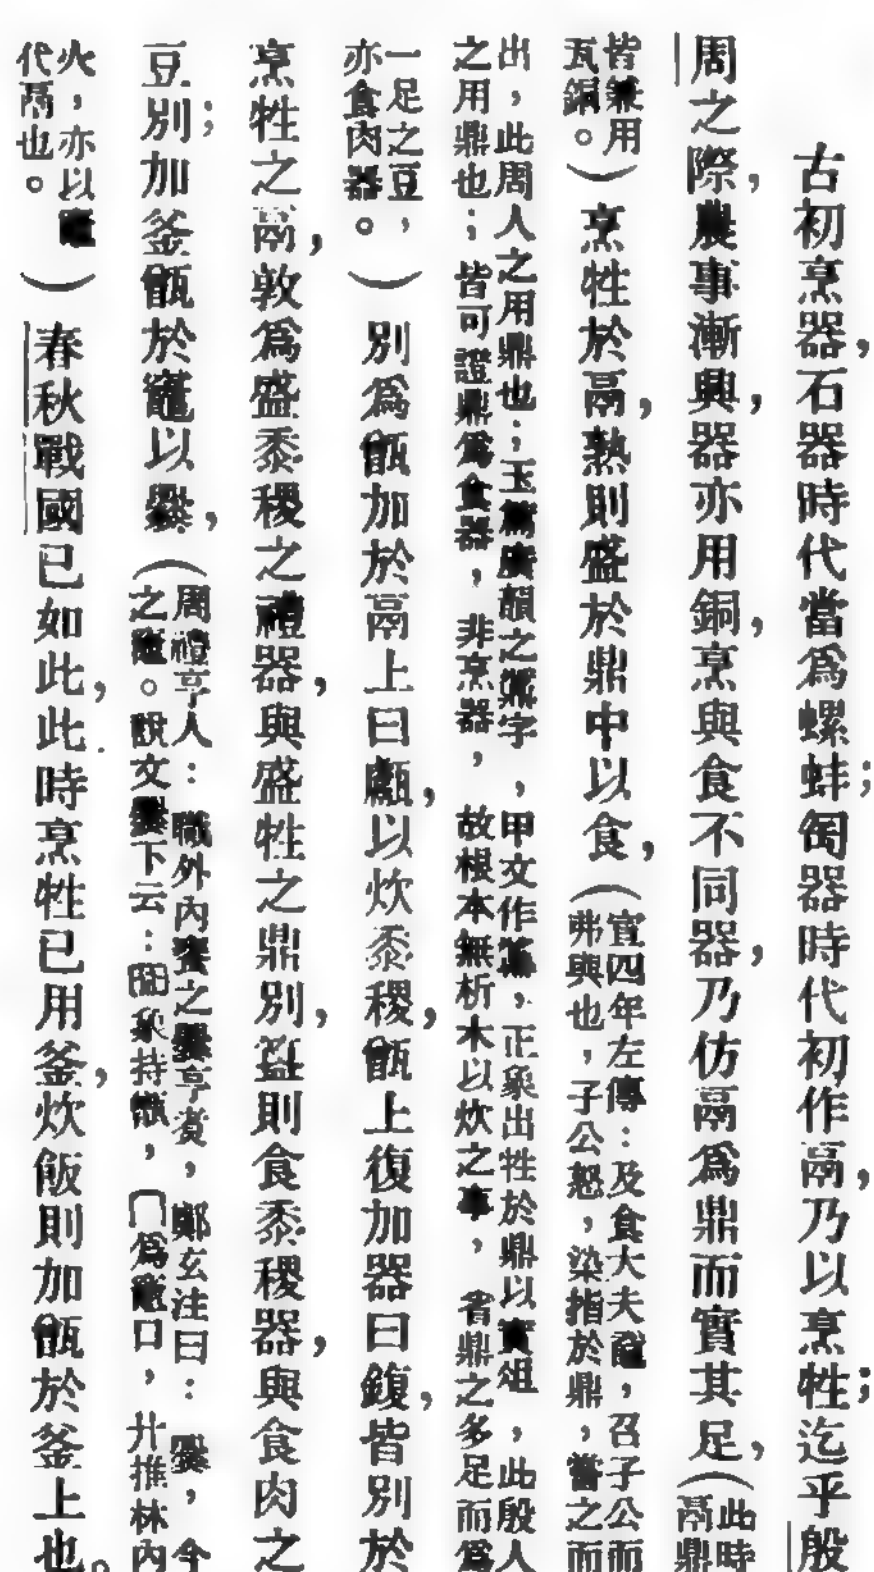 古初烹器，石器時代當爲螺蚌；匋器時代初作鬲，乃以烹牲；迄乎殷
周之際，農事漸興，器亦用銅，烹與食不同器，乃仿鬲爲鼎而實其足，（此時
鬲鼎
皆兼用
瓦銅。）烹牲於鬲，熟則盛於鼎中以食，（宣四年左傳：及食大夫黿，召子公而
弗與也，子公怒，染指於鼎，嘗之而
出，此周人之用鼎也；玉篇廣韻之字，甲文作，正象出牲於鼎以實俎，此殷人
之用鼎也；皆可證鼎爲食器，非烹器，故根本無析木以炊之事，省鼎之多足而爲
一足之豆，
亦食肉器。）別爲甑加於鬲上曰甗，以炊黍稷，甑上復加器曰鍑，皆別於
烹牲之鬲，敦爲盛黍稷之禮器，與盛牲之鼎別，簋則食黍稷器，與食肉之
豆別；加釜甑於竈以爨，（周禮亨人：職外內饔之爨亨煮，鄭玄注曰：爨，今
之竈。說文爨下云：𦥑象持甑，冂爲竈口，廾推林內
火，亦以竈
代鬲也。）春秋戰國已如此，此時烹牲已用釜，炊飯則加甑於釜上也。